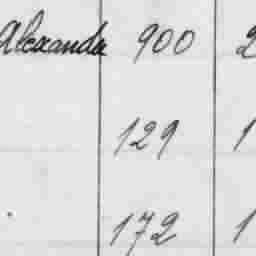 Alexanda 900 2
129 1
172 1